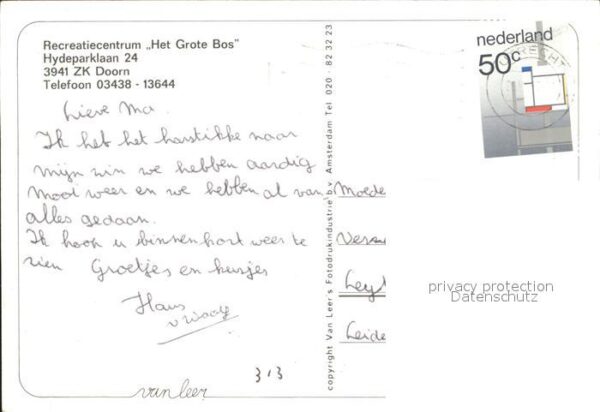 Recreatiecentrum „Het Grote Bos"
Hydeparklaan 24
3941 ZK Doorn
Telefoon 03438 - 13644
Lieve Ma.
Ik heb het harstikke naar
mijn zin we hebben aardig
mooi weer en we hebben al van
alles gedaan.
Ik hoop u binnenkort weer te
zien Groetjes en kusjes
Hans
313
van leer
copyright Van Leer's Fotodrukindustrie b.v. Amsterdam Tel 020 - 82 32 23
nederland
50c
UTRECHT
Moede
Leyd
Leide
privacy protection
Datenschutz